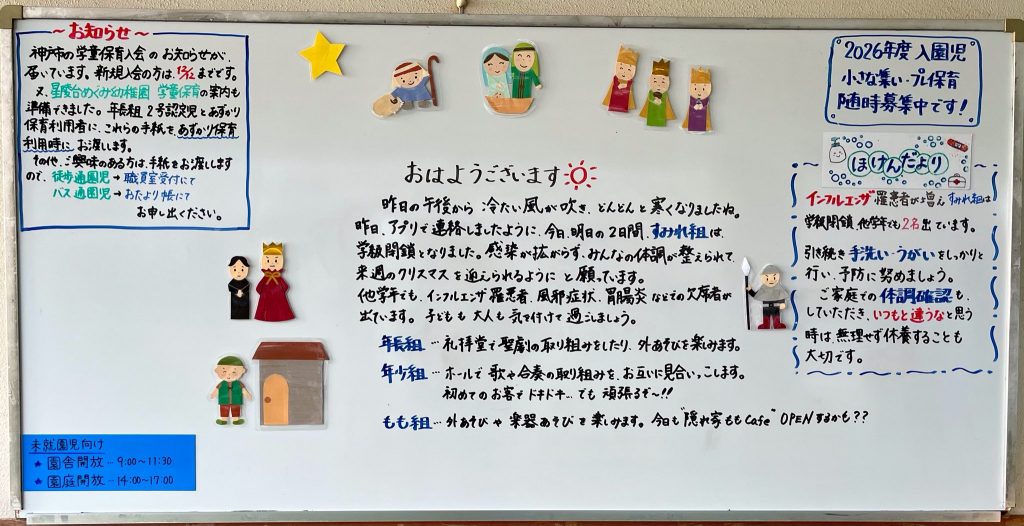 ～お知らせ～
神戸市の学童保育入会のお知らせが、
届いています。新規入会の方は、12/12までです。
又、星陵台めぐみ幼稚園 学童保育の案内も
準備できました。年長組 2号認定児とあずかり
保育利用者に、これらの手紙を、あずかり保育
利用時に、お渡しします。
その他、ご興味のある方は、手紙をお渡しします
ので、徒歩通園児→職員室受付にて
バス通園児→おたより帳にて
お申し出ください。
2026年度 入園児
小さな集い・プレ保育
随時募集中です!
ほけんだより
インフルエンザ罹患者が増え すみれ組は
学級閉鎖、他学年でも2名出ています。
引き続き手洗い・うがいをしっかりと
行い、予防に努めましょう。
ご家庭での体調確認も、
していただき、いつもと違うなと思う
時は、無理せず休養することも
大切です。
おはようございます
昨日の午後から 冷たい風が吹き、どんどんと寒くなりましたね。
昨日、アプリで連絡しましたように、今日、明日の2日間、すみれ組は、
学級閉鎖となりました。感染が拡がらず、みんなの体調が整えられて、
来週のクリスマスを迎えられるように と願っています。
他学年でも、インフルエンザ罹患者、風邪症状、胃腸炎などでの欠席者が
出ています。子どもも大人も気を付けて過ごしましょう。
年長組…礼拝堂で聖劇の取り組みをしたり、外あそびを楽しみます。
年少組…ホールで歌や合奏の取り組みを、お互いに見合いっこします。
初めてのお客でドキドキ…でも 頑張るぞ～!!
もも組…外あそびや楽器あそびを楽しみます。今日も“隠れ家ももCafe”OPENするかも??
未就園児向け
★園舎開放…9:00～11:30
★園庭開放…14:00～17:00